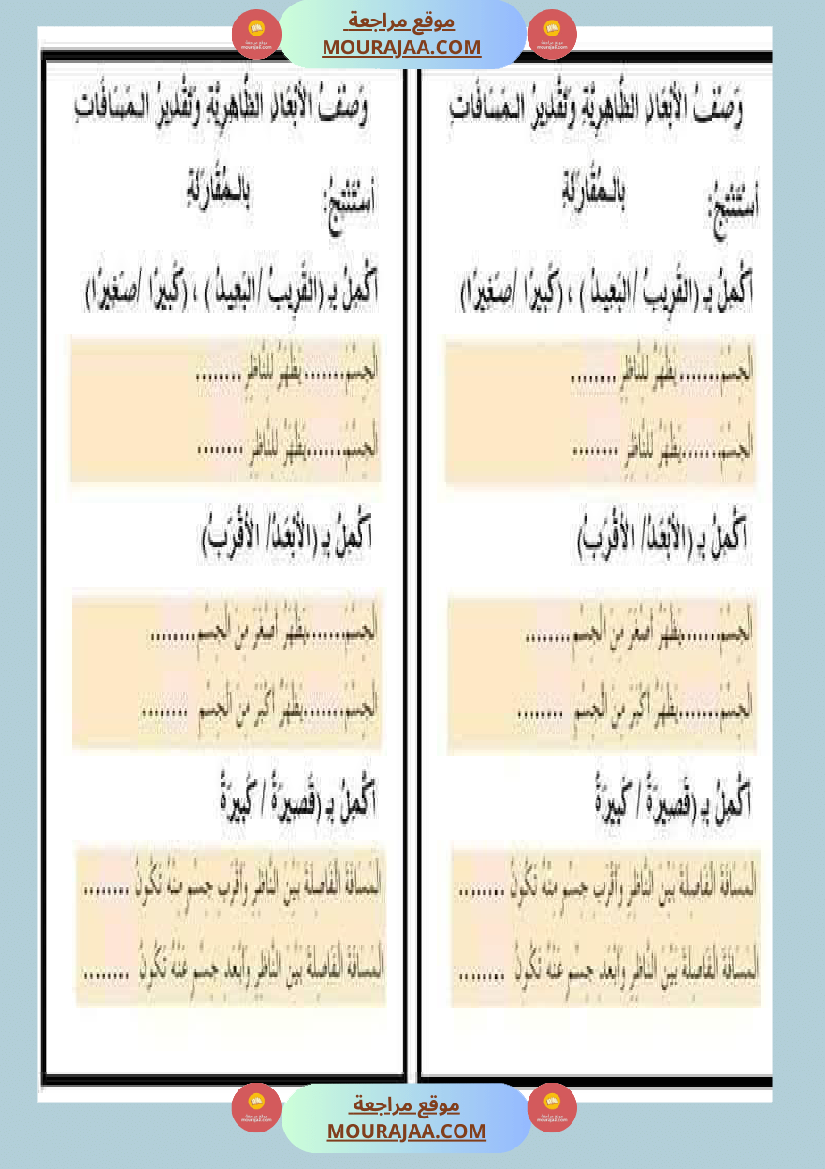 موقع مراجعة
MOURAJAA.COM
وَصْفُ الأَبْعَادِ الظَّاهِرِيَّةِ وَتَقْدِيرُ الـمَسَافَاتِ
بِالـمُقَارَنَةِ
أَسْتَنْتِجُ:
أُكْمِلُ بِـ (القَرِيبُ /البَعِيدُ ) ، (كَبِيرًا /صَغِيرًا)
الْجِسْمُ.......يَظْهَرُ لِلنَّاظِرِ ........
الْجِسْمُ.......يَظْهَرُ لِلنَّاظِرِ ........
أُكْمِلُ بِـ (الأَبْعَدُ/ الأَقْرَبُ)
الْجِسْمُ.......يَظْهَرُ أَصْغَرَ مِنَ الْجِسْمِ........
الْجِسْمُ.......يَظْهَرُ أَكْبَرَ مِنَ الْجِسْمِ ........
أُكْمِلُ بِـ (قَصِيرَةً / كَبِيرَةً
الْمَسَافَةُ الْفَاصِلَةُ بَيْنَ النَّاظِرِ وَأَقْرَبِ جِسْمٍ مِنْهُ تَكُونُ ........
الْمَسَافَةُ الْفَاصِلَةُ بَيْنَ النَّاظِرِ وَأَبْعَدِ جِسْمٍ عَنْهُ تَكُونُ ........
وَصْفُ الأَبْعَادِ الظَّاهِرِيَّةِ وَتَقْدِيرُ الـمَسَافَاتِ
بِالـمُقَارَنَةِ
أَسْتَنْتِجُ:
أُكْمِلُ بِـ (القَرِيبُ /البَعِيدُ ) ، (كَبِيرًا /صَغِيرًا)
الْجِسْمُ.......يَظْهَرُ لِلنَّاظِرِ ........
الْجِسْمُ.......يَظْهَرُ لِلنَّاظِرِ ........
أُكْمِلُ بِـ (الأَبْعَدُ/ الأَقْرَبُ)
الْجِسْمُ.......يَظْهَرُ أَصْغَرَ مِنَ الْجِسْمِ........
الْجِسْمُ.......يَظْهَرُ أَكْبَرَ مِنَ الْجِسْمِ ........
أُكْمِلُ بِـ (قَصِيرَةً / كَبِيرَةً
الْمَسَافَةُ الْفَاصِلَةُ بَيْنَ النَّاظِرِ وَأَقْرَبِ جِسْمٍ مِنْهُ تَكُونُ ........
الْمَسَافَةُ الْفَاصِلَةُ بَيْنَ النَّاظِرِ وَأَبْعَدِ جِسْمٍ عَنْهُ تَكُونُ ........
موقع مراجعة
MOURAJAA.COM